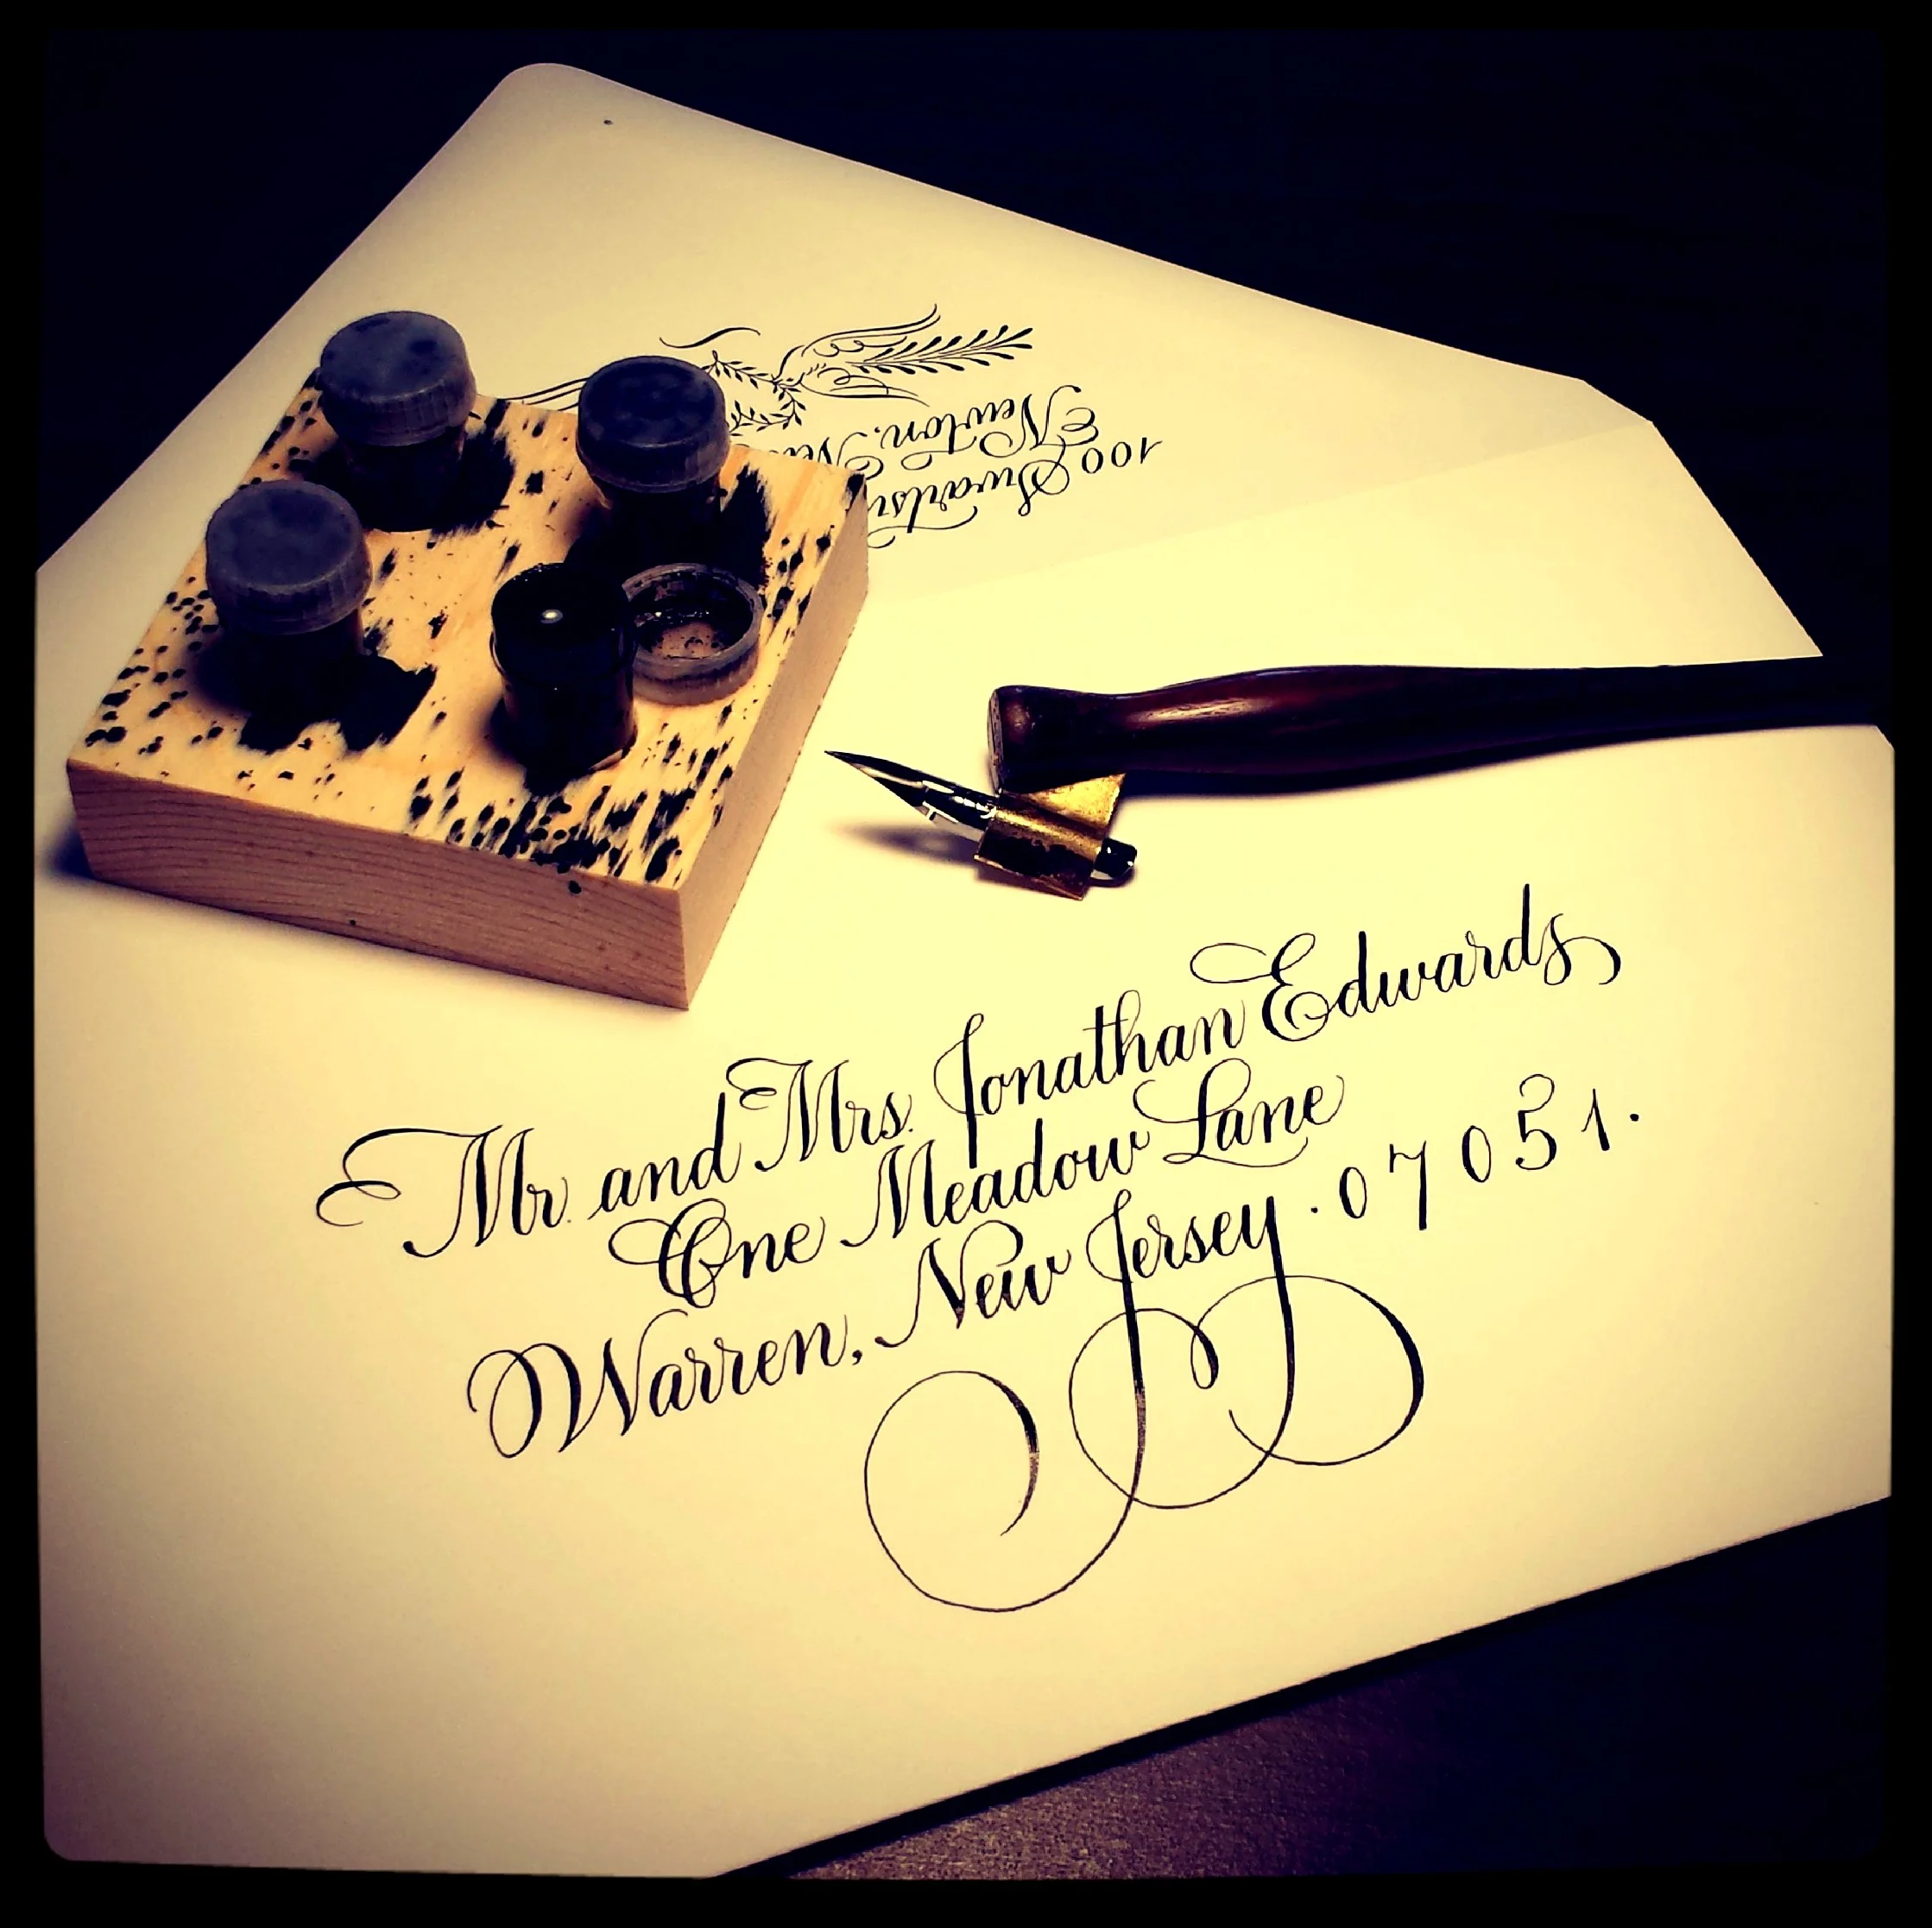 100
Newton,
Mr. and Mrs. Jonathan Edwards
One Meadow Lane
Warren, New Jersey . 07051.